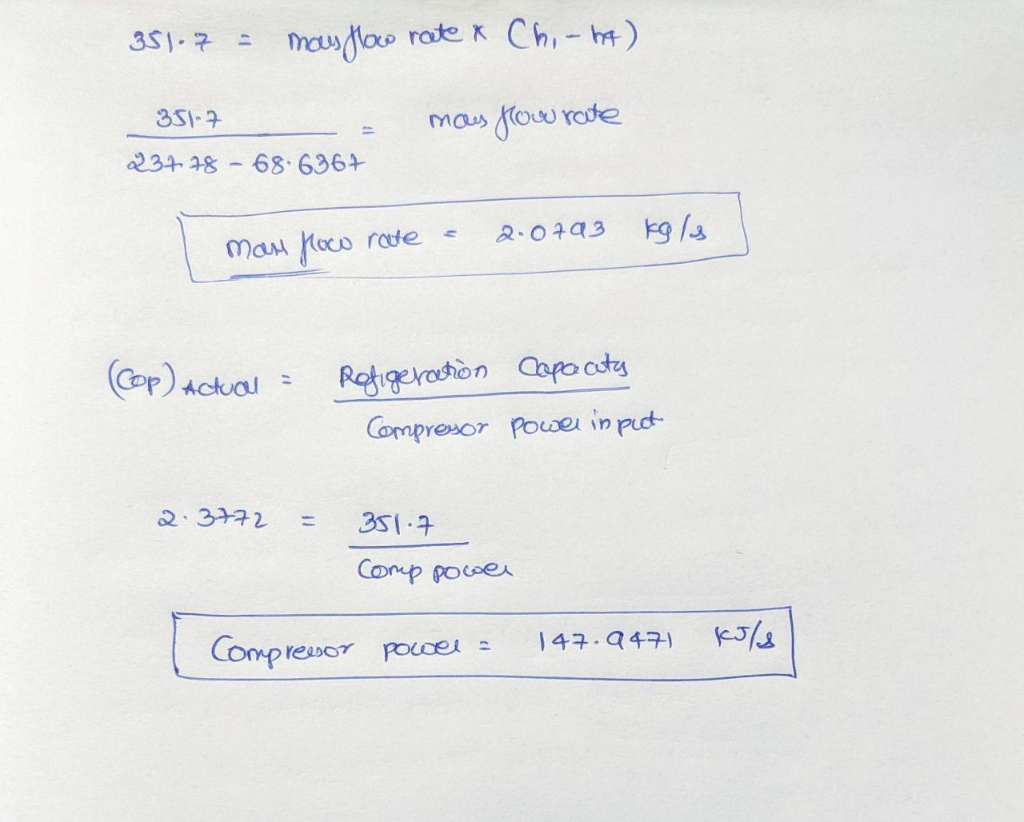 351.7 = mass flow rate x (h1 - h4)
351.7 = mass flow rate
237.78 - 68.6367
mass flow rate = 2.0793 kg/s
(COP) Actual = Refigeration Capacity
Compressor power input
2.3772 = 351.7
Comp power
Compressor power = 147.9471 kJ/s